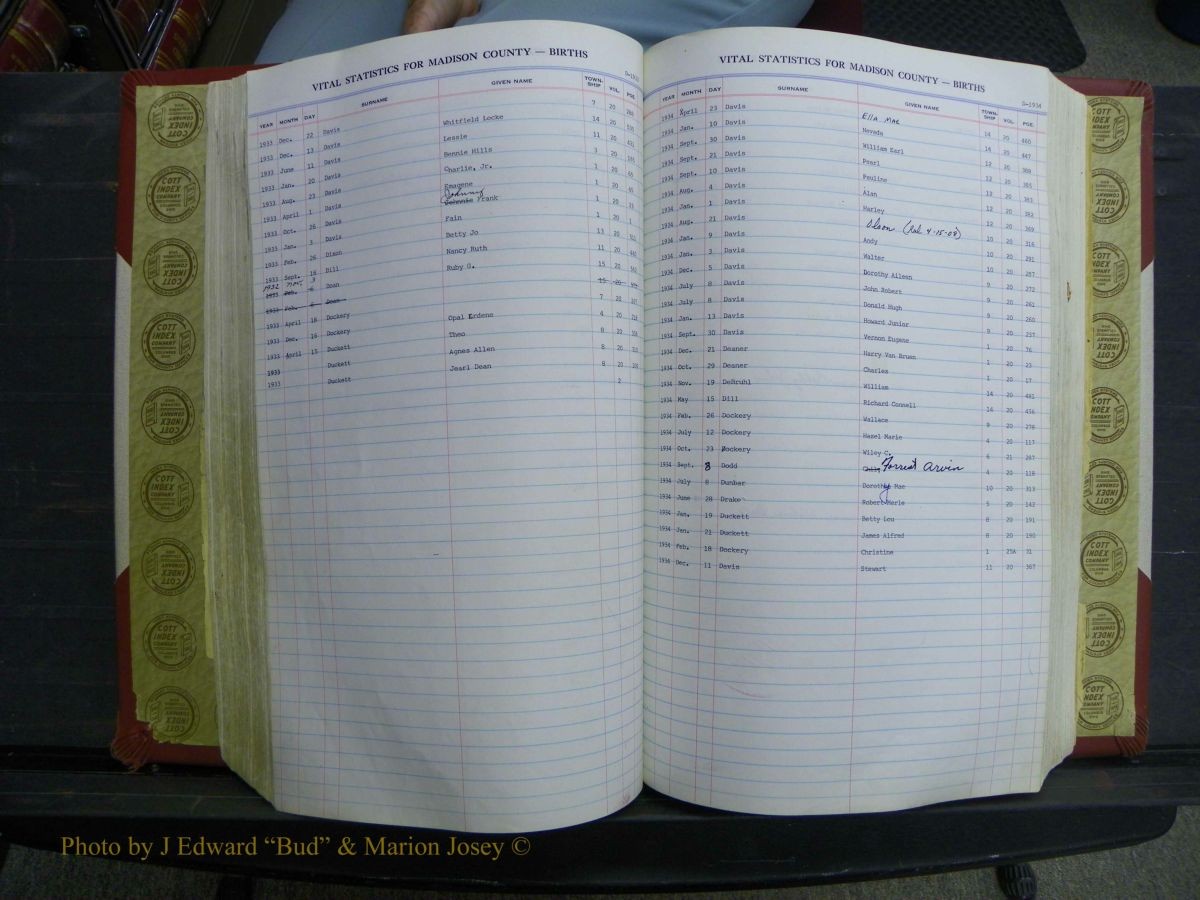 VITAL STATISTICS FOR MADISON COUNTY — BIRTHS
YEAR MONTH DAY SURNAME GIVEN NAME TOWN-SHIP VOL. PGE.
1933 Dec. 22 Davis Whitfield Locke 7 20
1933 Dec. 13 Davis Lessie 14 20
1933 June 11 Davis Bennie Hills 11 20
1933 Jan. 20 Davis Charlie, Jr. 3 20
1933 Aug. 23 Davis Emagene 1 20
1933 April 1 Davis Johnny Frank 1 20
1933 Oct. 26 Davis Fain 1 20
1933 Jan. 3 Davis Betty Jo 1 20
1933 Feb. 26 Dixon Nancy Ruth 13 20
1933 Sept. 18 Dill Ruby G. 11 20
1932 Nov. 3 Doan 15 20
1933 Feb. 6 Doan 15 20
1933 April 18 Dockery Opal Erdene 7 20
1933 Dec. 16 Dockery Theo 4 20
1933 April 15 Duckett Agnes Allen 8 20
1933 Duckett Jearl Dean 8 20
1933 Duckett 8 20
2
VITAL STATISTICS FOR MADISON COUNTY — BIRTHS
D-1934
YEAR MONTH DAY SURNAME GIVEN NAME TOWN-SHIP VOL. PGE.
1934 April 23 Davis Ella Mae 14 20 460
1934 Jan. 10 Davis Nevada 14 20 447
1934 Sept. 30 Davis William Earl 12 20 388
1934 Sept. 21 Davis Pearl 12 20 385
1934 Sept. 10 Davis Pauline 12 20 383
1934 Aug. 4 Davis Alan 12 20 382
1934 Jan. 1 Davis Harley 12 20 369
1934 Aug. 21 Davis Olson (Rul 4-15-08) 10 20 316
1934 Jan. 9 Davis Andy 10 20 291
1934 Jan. 3 Davis Walter 10 20 287
1934 Dec. 5 Davis Dorothy Aileen 9 20 272
1934 July 8 Davis John Robert 9 20 261
1934 July 8 Davis Donald Hugh 9 20 260
1934 Jan. 13 Davis Howard Junior 9 20 257
1934 Sept. 30 Davis Vernon Eugene 1 20 76
1934 Dec. 21 Deaner Harry Van Bruen 1 20 23
1934 Oct. 29 Deaner Charles 1 20 17
1934 Nov. 19 DeBruhl William 14 20 481
1934 May 15 Dill Richard Connell 14 20 456
1934 Feb. 26 Dockery Wallace 9 20 278
1934 July 12 Dockery Hazel Marie 4 20 117
1934 Oct. 23 Dockery Wiley C. 6 21 287
1934 Sept. 8 Dodd Forrest Arvin 4 20 118
1934 July 8 Dunbar Dorothy Mae 10 20 313
1934 June 28 Drake Robert Merle 5 20 142
1934 Jan. 19 Duckett Betty Lou 8 20 191
1934 Jan. 21 Duckett James Alfred 8 20 190
1934 Feb. 18 Dockery Christine 1 25A 31
1934 Dec. 11 Davis Stewart 11 20 367
COTT INDEX COMPANY
Photo by J Edward “Bud” & Marion Josey ©